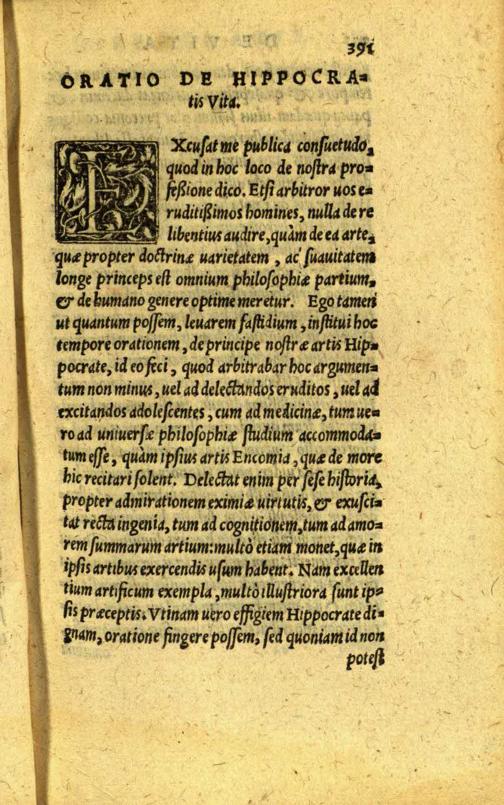 391
ORATIO DE HIPPOCRA=
tis Vita.
EXcusat me publica consuetudo,
quod in hoc loco de nostra pro=
feßione dico. Etsi arbitror uos e=
ruditißimos homines, nulla de re
libentius audire, quàm de ea arte,
quæ propter doctrinæ uarietatem, ac suauitatem
longe princeps est omnium philosophiæ partium,
& de humano genere optime meretur. Ego tamen
ut quantum possem, leuarem fastidium, institui hoc
tempore orationem, de principe nostræ artis Hip=
pocrate, id eo feci, quod arbitrabar hoc argumen=
tum non minus, uel ad delectandos eruditos, uel ad
excitandos adolescentes, cum ad medicinæ, tum ue=
ro ad uniuersæ philosophiæ studium accommoda=
tum esse, quàm ipsius artis Encomia, quæ de more
hic recitari solent. Delectat enim per sese historia,
propter admirationem eximiæ uirtutis, & exusci=
tat recta ingenia, tum ad cognitionem, tum ad amo=
rem summarum artium: multò etiam monet, quæ in
ipsis artibus exercendis usum habent. Nam excellen
tium artificum exempla, multò illustriora sunt ip=
sis præceptis. Vtinam uero effigiem Hippocrate di=
gnam, oratione fingere possem, sed quoniam id non
potest